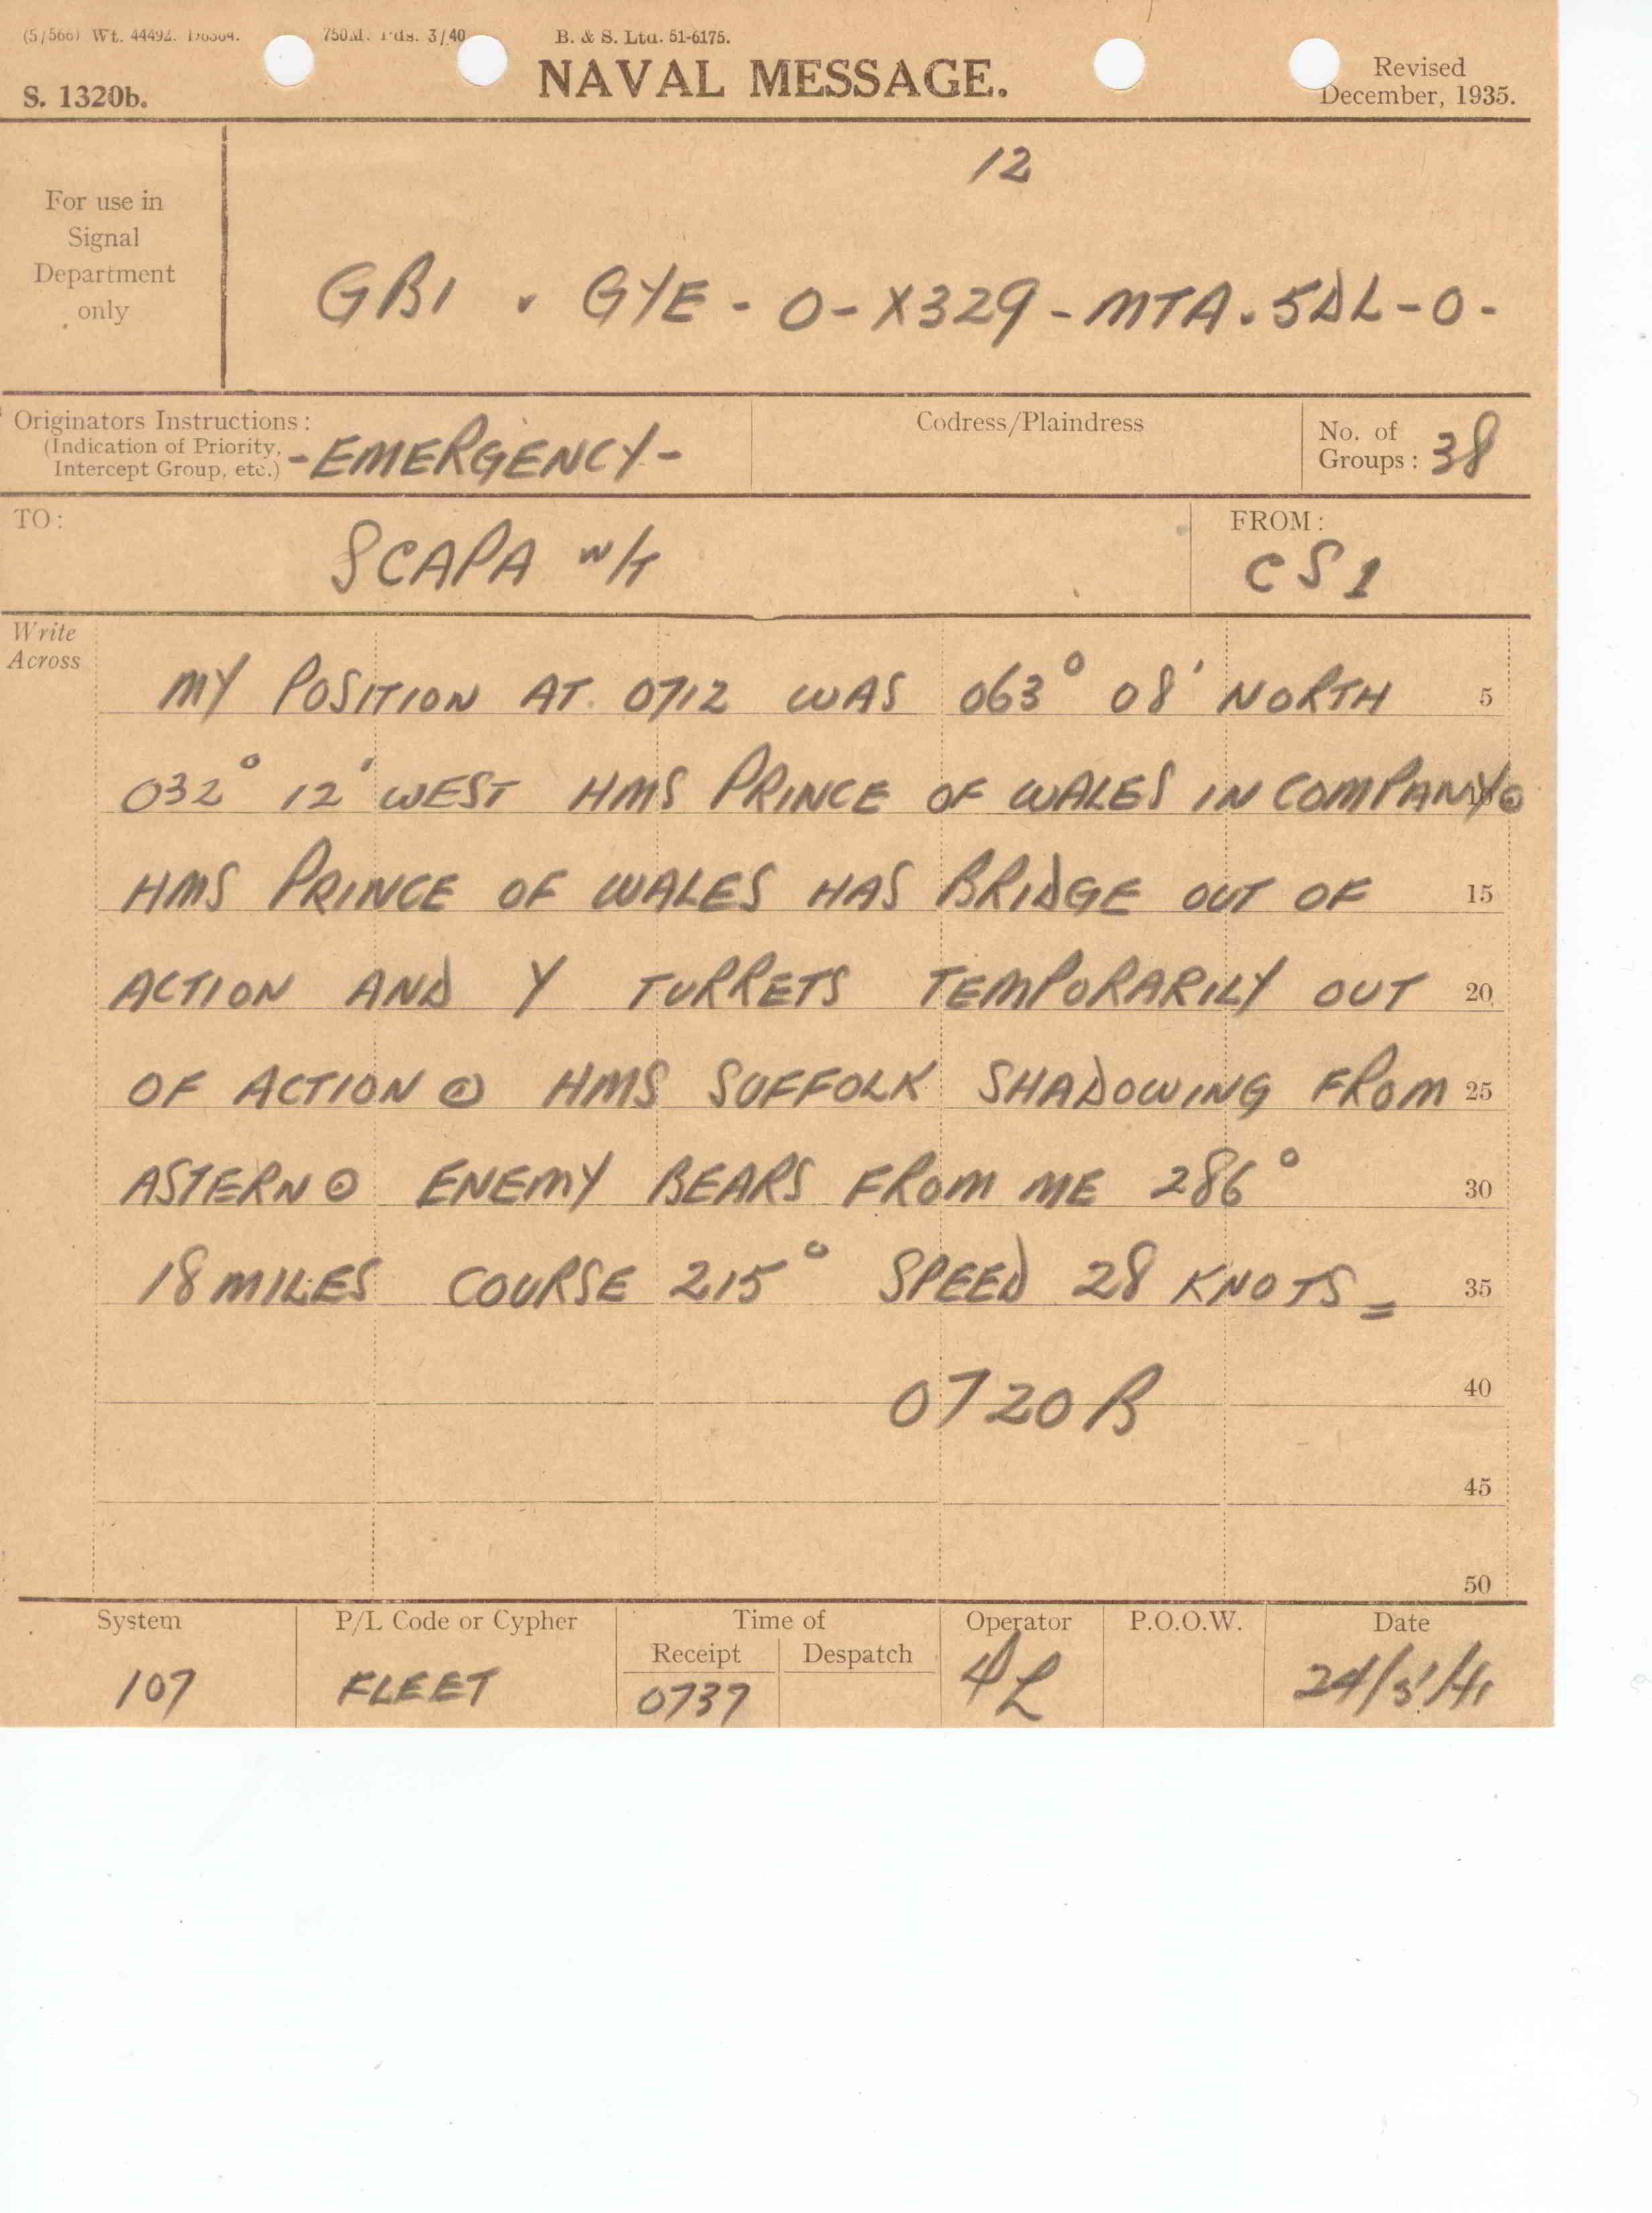 (5/566) Wt. 44492. 750M. Pds. 3/40 B. & S. Ltd. 51-6175.
S. 1320b. NAVAL MESSAGE. Revised
December, 1935.
12
For use in
Signal
Department
only
GB1 . GYE - O - X329 - MTA . 5DL - O -
Originators Instructions :
(Indication of Priority,
Intercept Group, etc.)
- EMERGENCY -
Codress/Plaindress
No. of
Groups : 38
TO: SCAPA W/T
FROM: CS1
Write
Across
MY POSITION AT 0712 WAS 063° 08' NORTH 5
032° 12' WEST HMS PRINCE OF WALES IN COMPANY⊙
HMS PRINCE OF WALES HAS BRIDGE OUT OF 15
ACTION AND Y TURRETS TEMPORARILY OUT 20
OF ACTION ⊙ HMS SUFFOLK SHADOWING FROM 25
ASTERN ⊙ ENEMY BEARS FROM ME 286° 30
18 MILES COURSE 215° SPEED 28 KNOTS = 35
0720B 40
45
50
System P/L Code or Cypher Time of Operator P.O.O.W. Date
Receipt Despatch
107 FLEET 0737 24/5/41